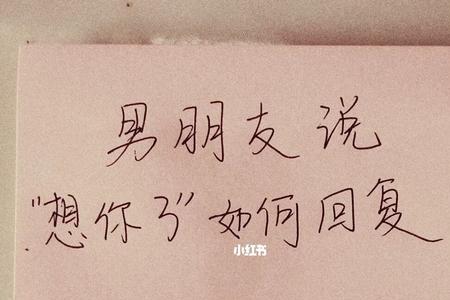 男朋友说
"想你了"如何回复
小红书